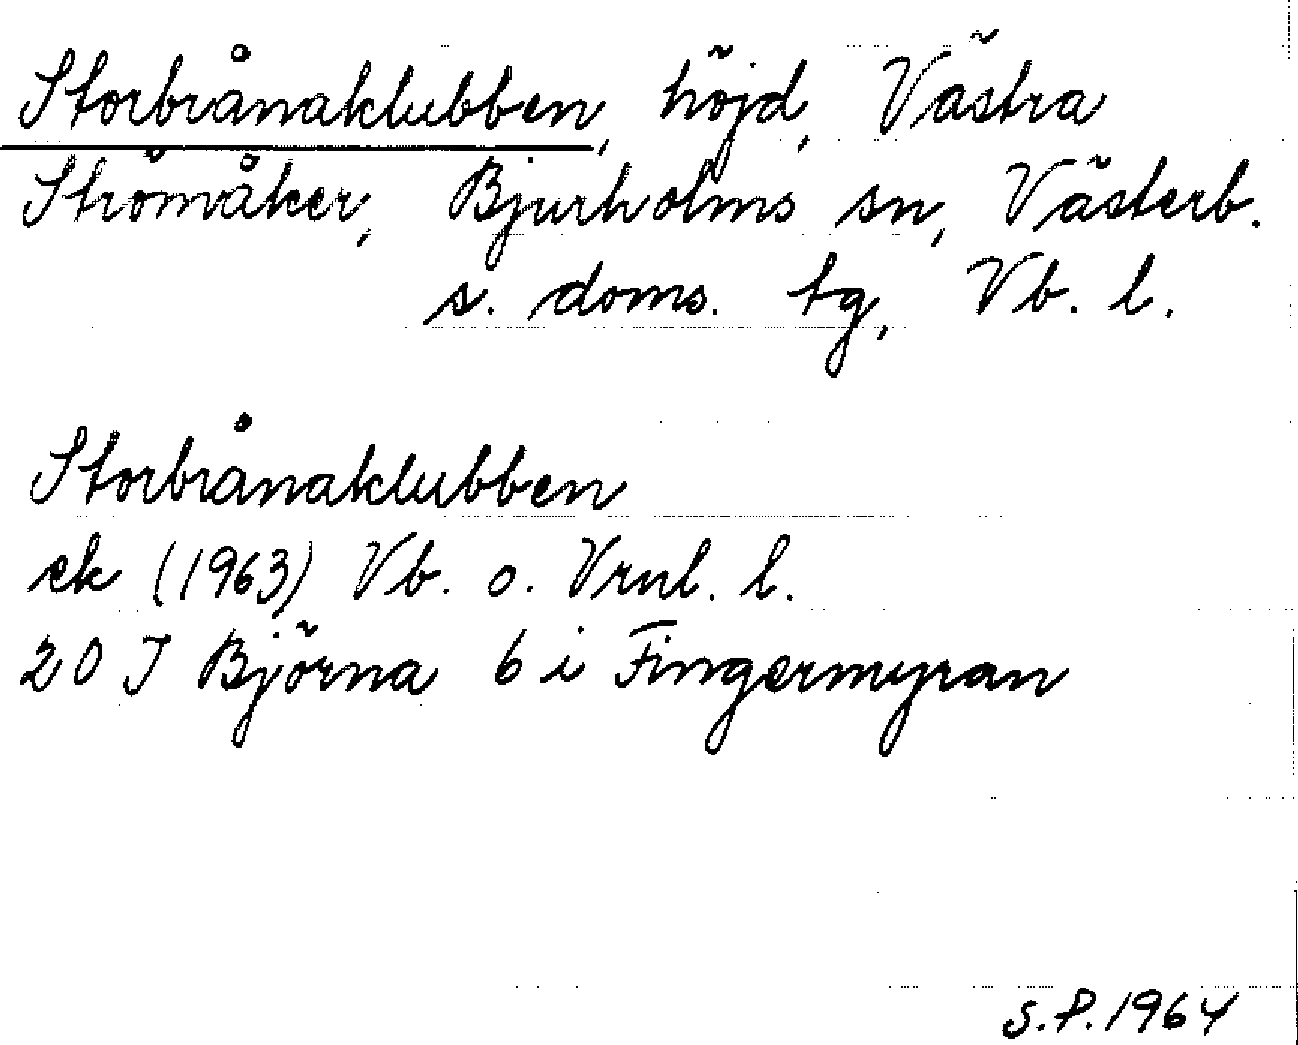 Storbrånaklubben, höjd, Västra
Strömåker, Bjurholms sn, Västerb.
s. doms. tg, Vb. l.
Storbrånaklubben
ek (1963) Vb. o. Vrnl. l.
20 J Björna 6 i Fingermyran
S.P. 1964